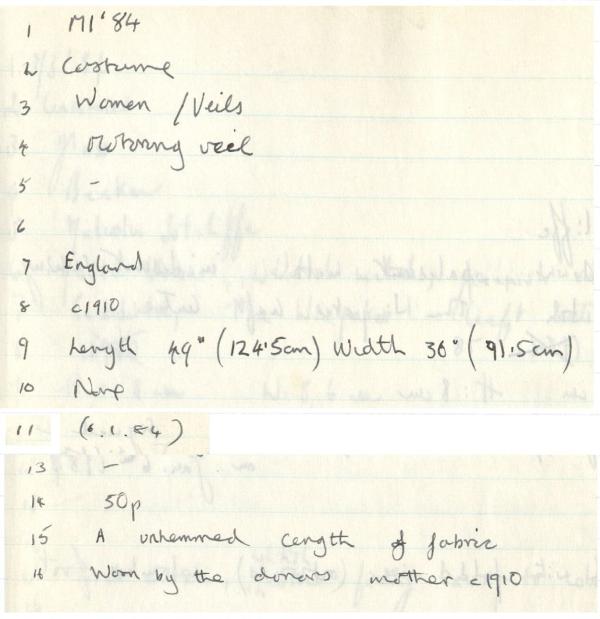 1 M1'84
2 Costume
3 Women / Veils
4 Motoring veil
5 -
6
7 England
8 c1910
9 Length 49" (124.5cm) Width 36" (91.5cm)
10 None
11 (6.1.84)
13 -
14 50p
15 A unhemmed length of fabric
16 Worn by the donors mother c1910